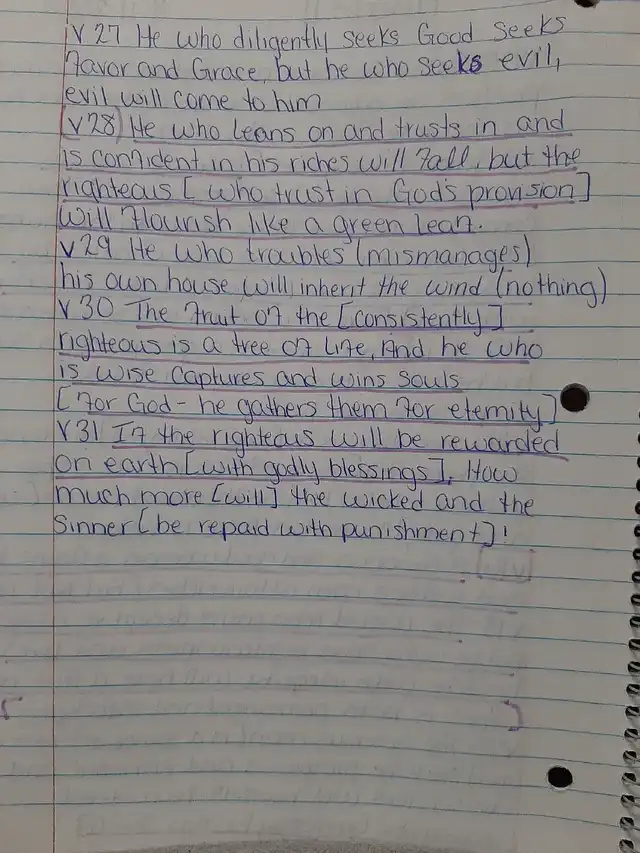 V 27 He who diligently seeks Good seeks
Favor and Grace, but he who seeks evil,
evil will come to him
V28) He who Leans on and trusts in and
is confident in his riches will Fall, but the
righteous [ who trust in God's provision]
will Flourish like a green Leaf.
V 29 He who troubles (mismanages)
his own house will inherit the wind (nothing)
V 30 The Fruit of the [consistently]
righteous is a tree of Life, And he who
is wise captures and wins souls
[For God - he gathers them For eternity]
V 31 If the righteous will be rewarded
on earth [with godly blessings], How
much more [will] the wicked and the
Sinner [be repaid with punishment]!